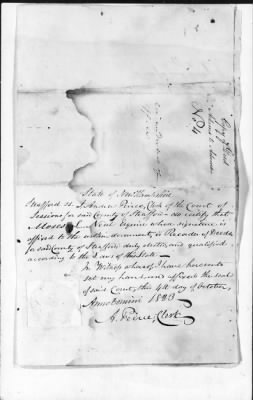 State of New Hampshire
Strafford ss. I Andrew Peirce, Clerk of the Court of
Sessions for said County of Strafford do certify that
Moses L. Neal Esquire whose signature is
affixed to the within document, is Recorder of Deeds
for said County of Strafford duly elected and qualified
according to the Laws of this State
In Witness whereof I have hereunto
set my hand and affixed the seal
of said Court, this 4th day of October,
Anno Domini 1823
A. Peirce, Clerk
No 4
Copy of Deed